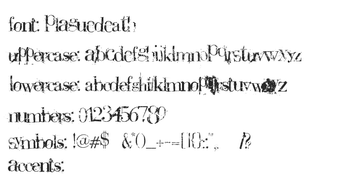 font: Plaguedeath
uppercase: abcdefghijklmnopqrstuvwxyz
lowercase: abcdefghijklmnopqrstuvwxyz
numbers: 0123456789
symbols: !@#$ &*()_+-=[]{};:",. /?
accents: